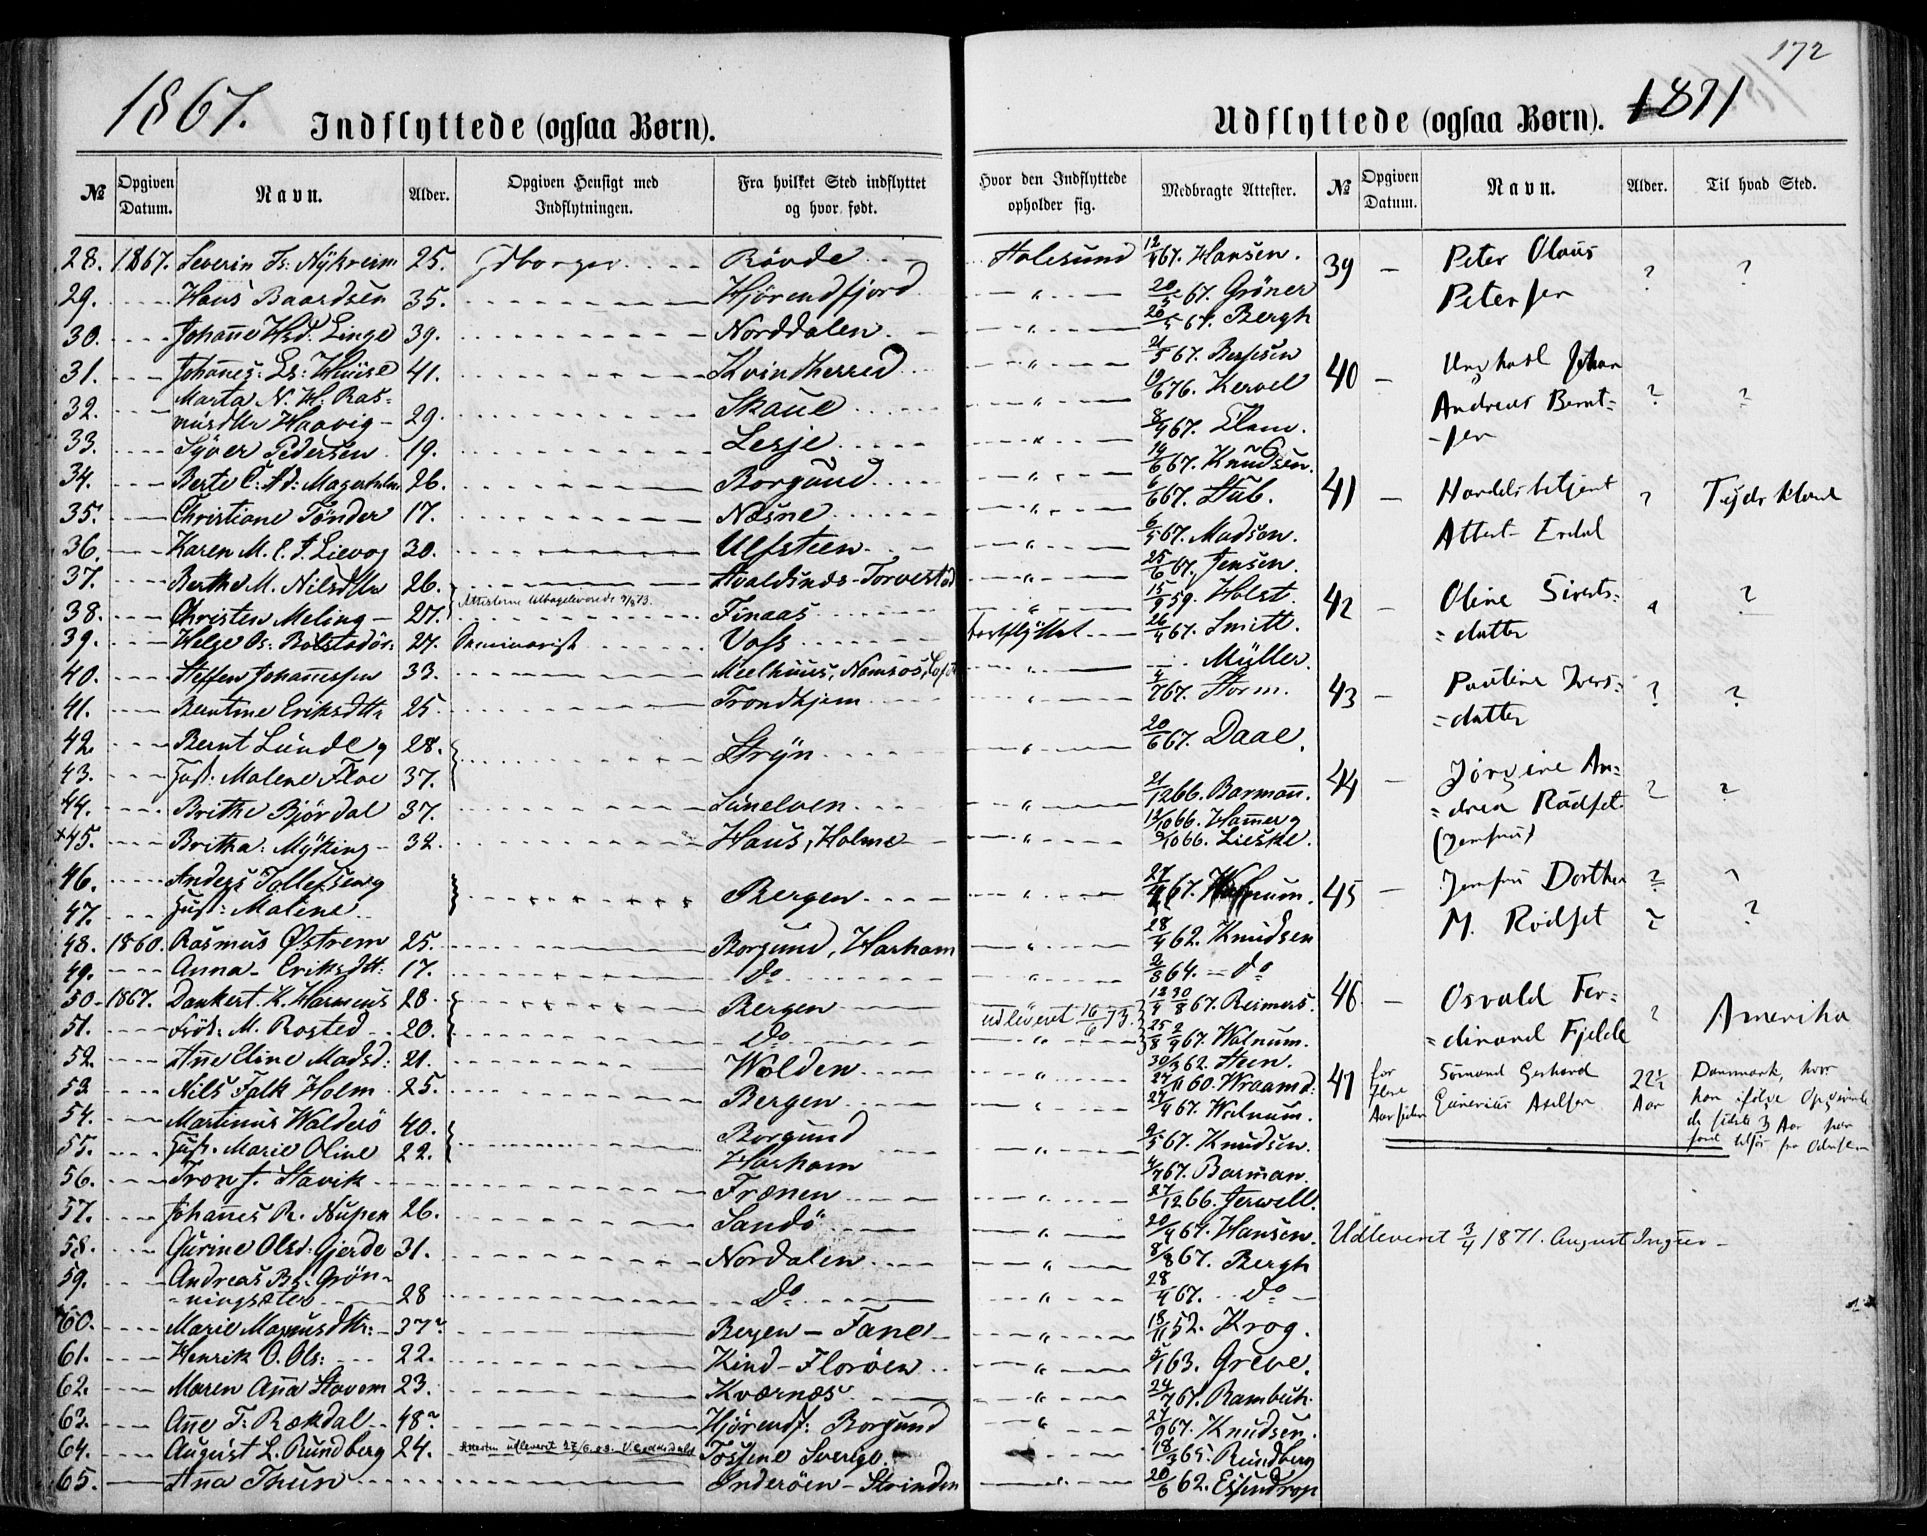 172
1867.
Indflyttede (ogsaa Børn).
Udflyttede (ogsaa Børn).
1871
№ Opgiven Datum. Navn. Alder. Opgiven Hensigt med Indflytningen. Fra hvilket Sted indflyttet og hvor født. Hvor den Indflyttede opholder sig. Medbragte Attester.
28. 1867. Severin Is: Nykreim 25. Rövde Aalesund 12/4 67. Hansen.
29. Hans Baardsen 35. Hjørendfjord " 20/5 67. Gröner
30. Johanne Hsd. Linge 39. Norddalen " 20/5 67. Bergh
31. Johannes: Ls: Huuse 41. Kvindherred " 21/5 67.
32. Marta N. H. Ras=
musdtr Haavig 29. Skaue "
33. Syver Pedersen 19. Lesje 67.
34. Berte C. Ad: Magerholm 26. Borgund " 14/6 67. Knudsen.
35. Christiane Tönder 17. Næsne " 6/6 67. Stub.
36. Karen M. C. J. Lievog 30. Ulfsteen " 6/5 67. Madsen.
37. Berthe M. Nilsdtr 26. Avaldsnæs-Torvestad " 25/6 67. Jensen.
38. Christen Meling 27. Attesterne tilbageleverede Finaas " 15/9 59. Holst.
39. Helge Os: Bolstadör: 27. Seminarist Voss bortflyttet 26/4 67. Smitt.
40. Steffen Johannessen 33. Meelhuus, Namsos, " Müller.
41. Berntine Eriksdtr 25. Trondhjem " 4/7 67. Storm.
42. Bernt Lunde og 28. Stryn " 20/6 67. Daae.
43. Hust. Malene Floe 37.
44. Brithe Björdal 37. Sunelven " 21/12 66. Barmann.
+45. Britha: Myking 32. Haus, Holme " 12/10 66. Hammer og
9/10 66. Lieske.
46. Anders Tollefsen og Bergen " 27/4 67. Walnum.
47. Hust: Maline
48. 1860. Rasmus Østrem 25. Borgund, Harham " 28/4 62. Knudsen
49. Anna Eriksdtr: 17. Do " 2/8 64. Do
50. 1867. Dankert. K. Harmens 28. Bergen udleveret 16/6 73. 12/4 30/8 67. Reimers.
51. M. Rosted 20. Do " 25/8 2/9 67. Walnum.
52. Anne Eline Madsd: 21. Wolden 30/3 62. Steen.
53. Nils Falk Holm 25. Bergen " 27/11 60. Wraamd.
27/4 67. Walnum.
54. Martinus Walderö 40. Borgund " 9/5 67. Knudsen.
55. Hust. Marie Oline 22. Harham " 67. Barman.
56. Tron J. Stavik Frænen " 27/12 66. Jerwell.
57. Johannes R. Nupen 26. Sandö " 20/9 67. Hansen.
58. Gurine Olsd: Gjerde 31. Nordalen " 8/8 67. Bergh
59. Andreas Bs: Grön=
ningsæter 28 Do " 28/4 67. Do
60. Marie Magnusdtr: 37 Bergen - Fane " 13/11 52. Krog.
61. Henrik O. Ols: 22. Kind-Floröen " 63. Greve.
62. Maren Anna Stavem 23. Kværnæs " 24/7 67. Rambech.
63. Anne T: Rækdal 48 Hjörendf: Borgund " 27/9 67. Knudsen.
64. August L. Rundberg 24. Attesten udleveret 27/6 Tossene Sverige. 18/3 65. Rundberg
65. Anna Thun Inderöen-Strinden " 20/6 62. Essendrop
№ Opgiven Datum. Navn. Alder. Til hvad Sted.
39 — Peter Olaus ? ?
Petersen
40 — Ungkarl Johan
Andreas Bernt= ? ?
=sen
41 — Handelsbetjent ? Tydskland
Attest
42 — Oline Siverts= ?
=datter
43 — Pauline Ivers= ? ?
=datter
44 — Jørgine An= ? ?
=drea Rødset
(Jomfru)
45 — Jomfru Dorthea ? ?
M. Rødset ? ?
46 — Osvald Fer= ? Amerika
=dinand Fjelde
47 for flere Aar siden Gerhard Axelsen 22½ Aar Danmark, hvor
han ifølge Opgivende
de sidste 3 Aar har
Udleveret 3/4 1871. August